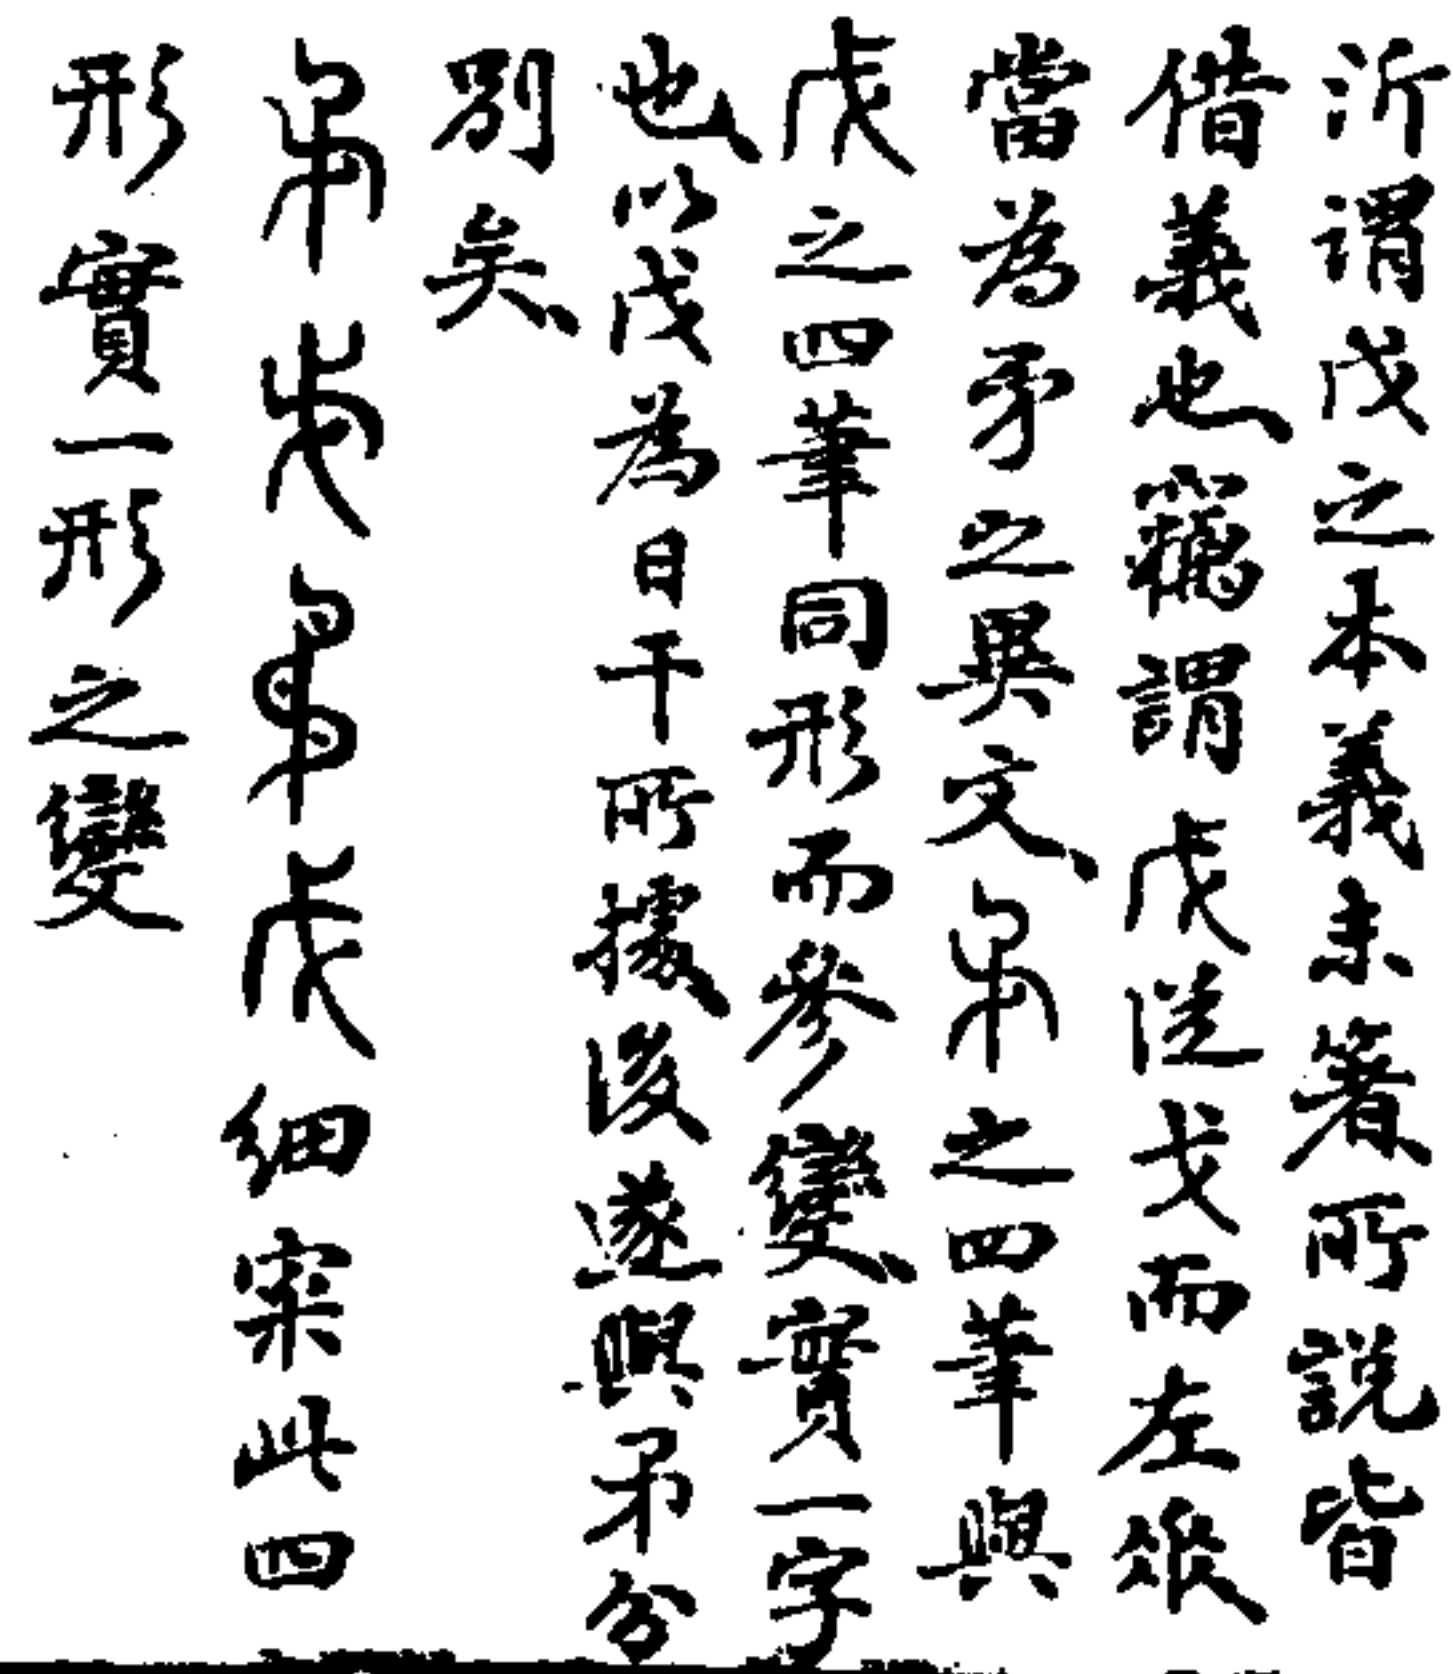 沂謂戊之本義未箸所説皆
借義也、竊謂戊從戈而左
當為矛之異文、矛之四筆與
戊之四筆同形而參變、實一字
也、以戊為日干所據後遂與矛分
別矣、
矛戊細案此四
形實一形之變